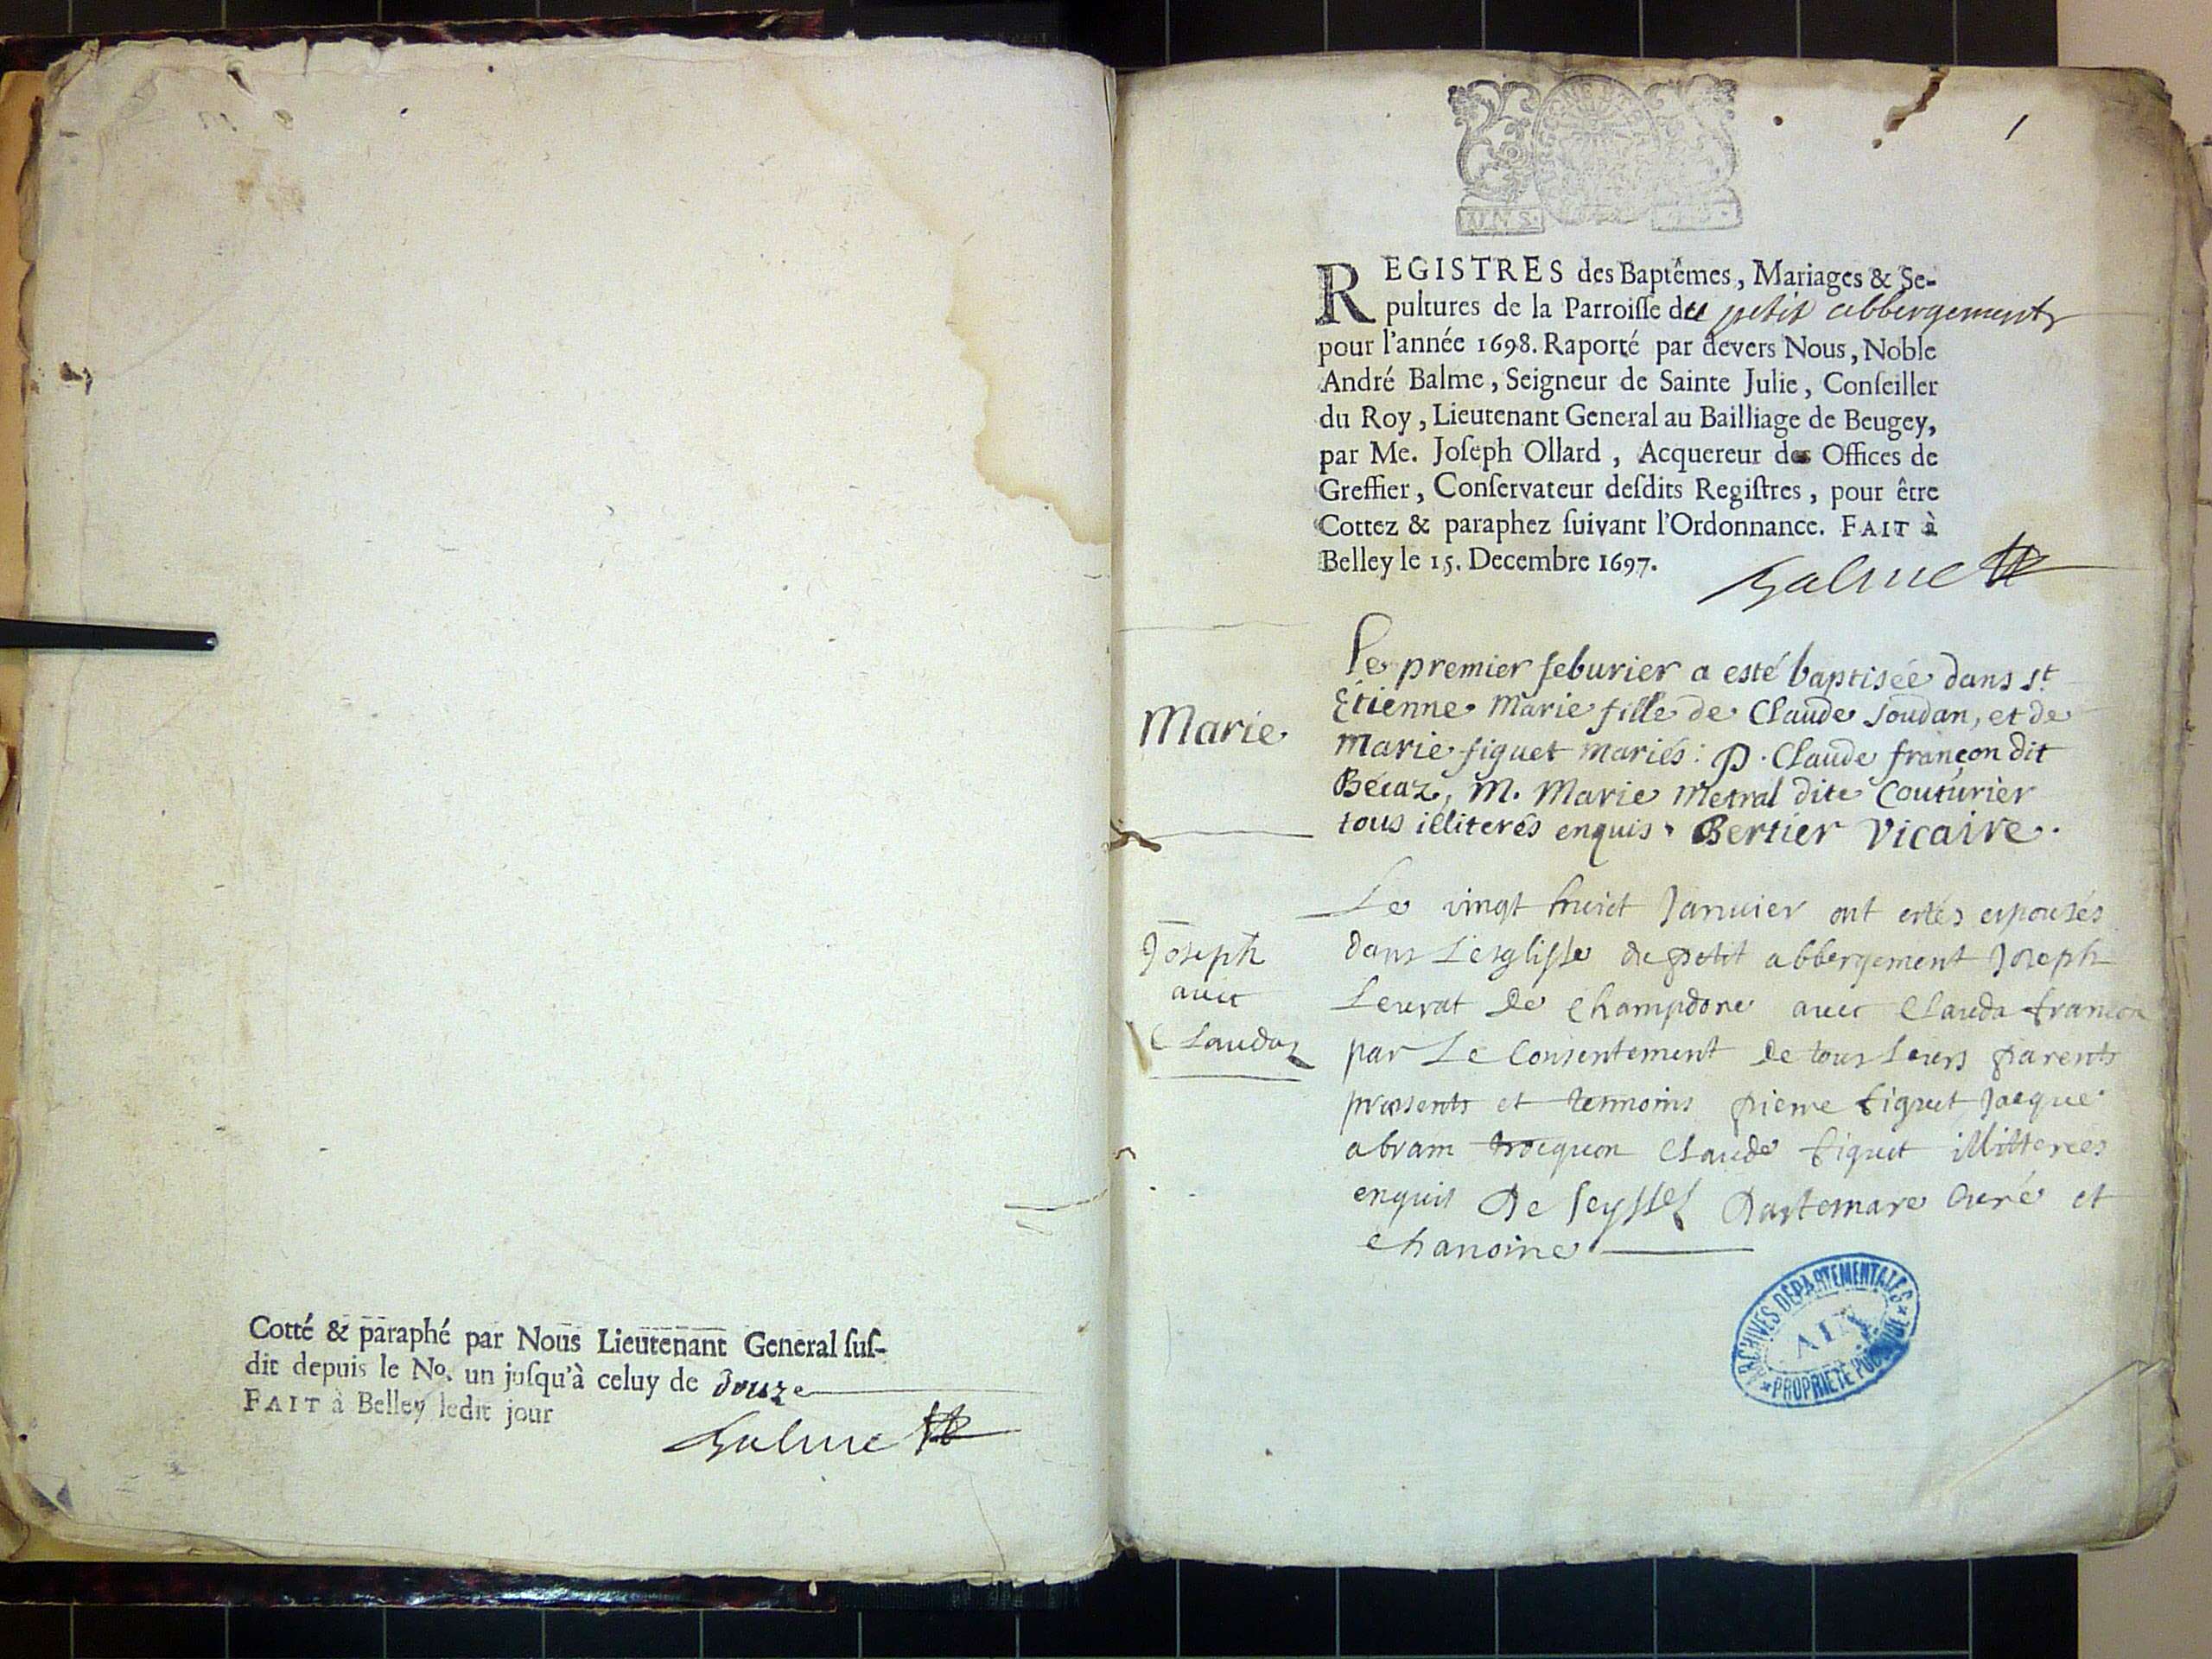 Cotté & paraphé par Nous Lieutenant General ſuſ-
dit depuis le No. un juſqu'à celuy de douze
FAIT à Belley ledit jour
Balme
1
REGISTRES des Baptêmes, Mariages & Se-
pultures de la Parroiſſe du petit abbergement
pour l'année 1698. Raporté par devers Nous, Noble
André Balme, Seigneur de Sainte Julie, Conſeiller
du Roy, Lieutenant General au Bailliage de Beugey,
par Me. Joſeph Ollard, Acquereur des Offices de
Greffier, Conſervateur deſdits Regiſtres, pour être
Cottez & paraphez ſuivant l'Ordonnance. FAIT à
Belley le 15. Decembre 1697.
Balme
Marie
Le premier feburier a esté baptisée dans st
Étienne Marie fille de Claude Joudan, et de
Marie figuet mariés: P. Claude françon dit
Bécaz, M. Marie Metral dite Couturier
tous illiterés enquis. Bertier Vicaire.
Joseph
avec
Clauda
Le vingt huict Janvier ont estés espousés
dans L'esglisse du petit abbergement Joseph
Leurat de Champdore avec Clauda françon
par Le Consentement de tous Leurs parents
presents et temoins pierre figuet Jacque
abram Claude figuet illitterees
enquis De Seyssel Dartemare Curé et
chanoine
ARCHIVES DÉPARTEMENTALES
AIN
PROPRIÉTÉ PUBLIQUE